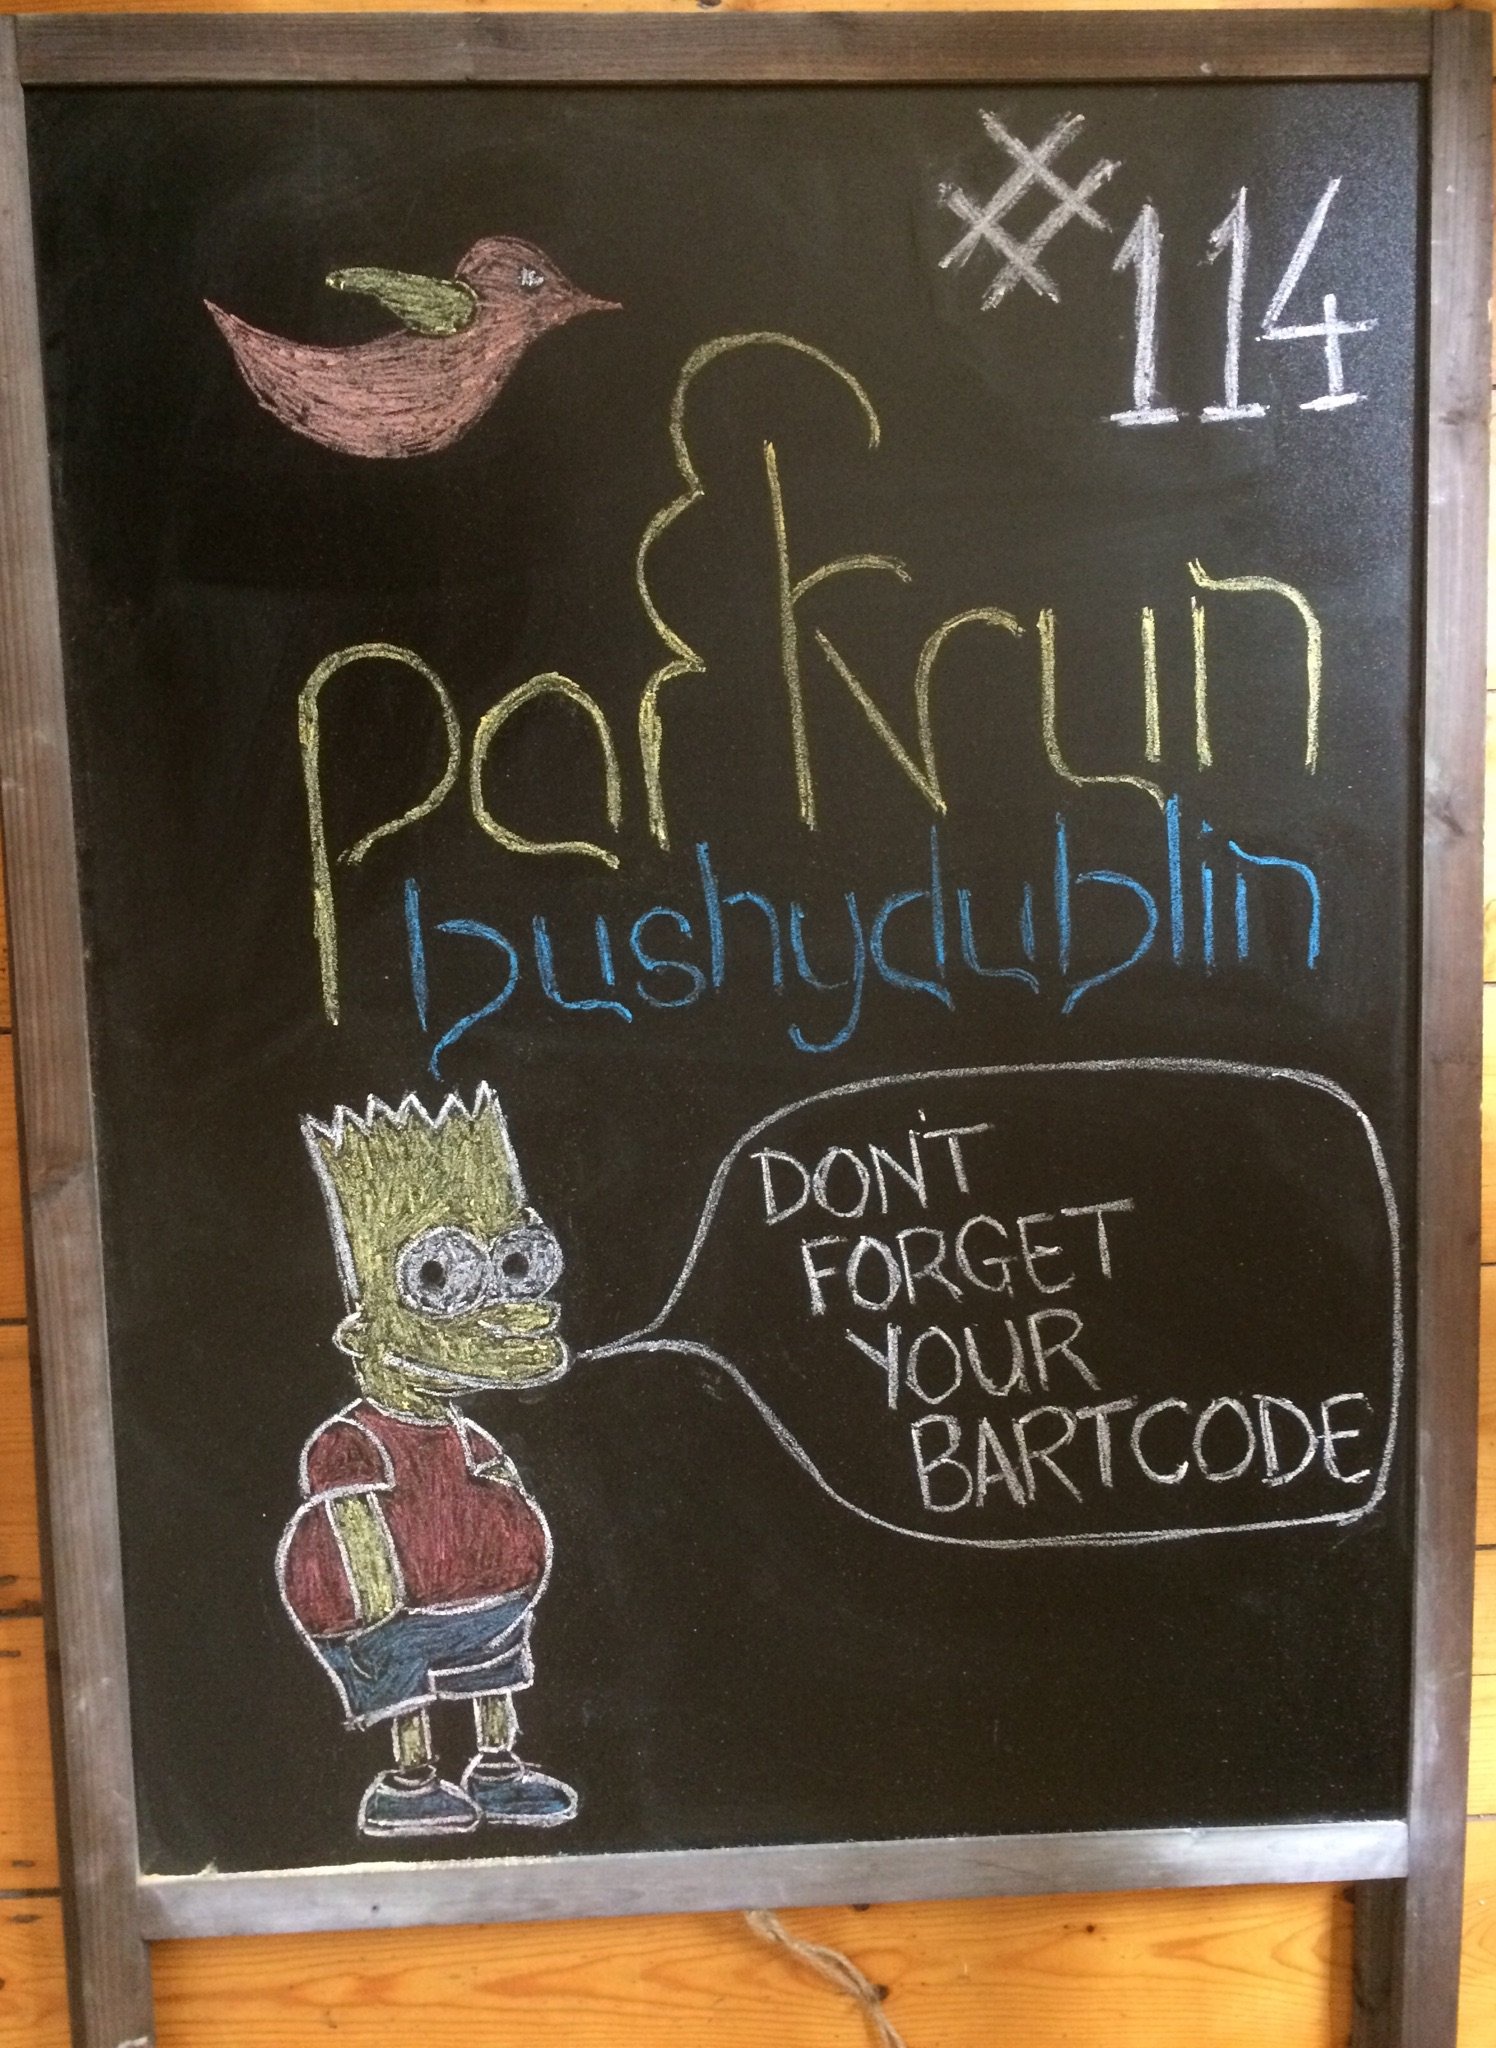 #114
parkrun
bushydublin
DON'T
FORGET
YOUR
BARTCODE